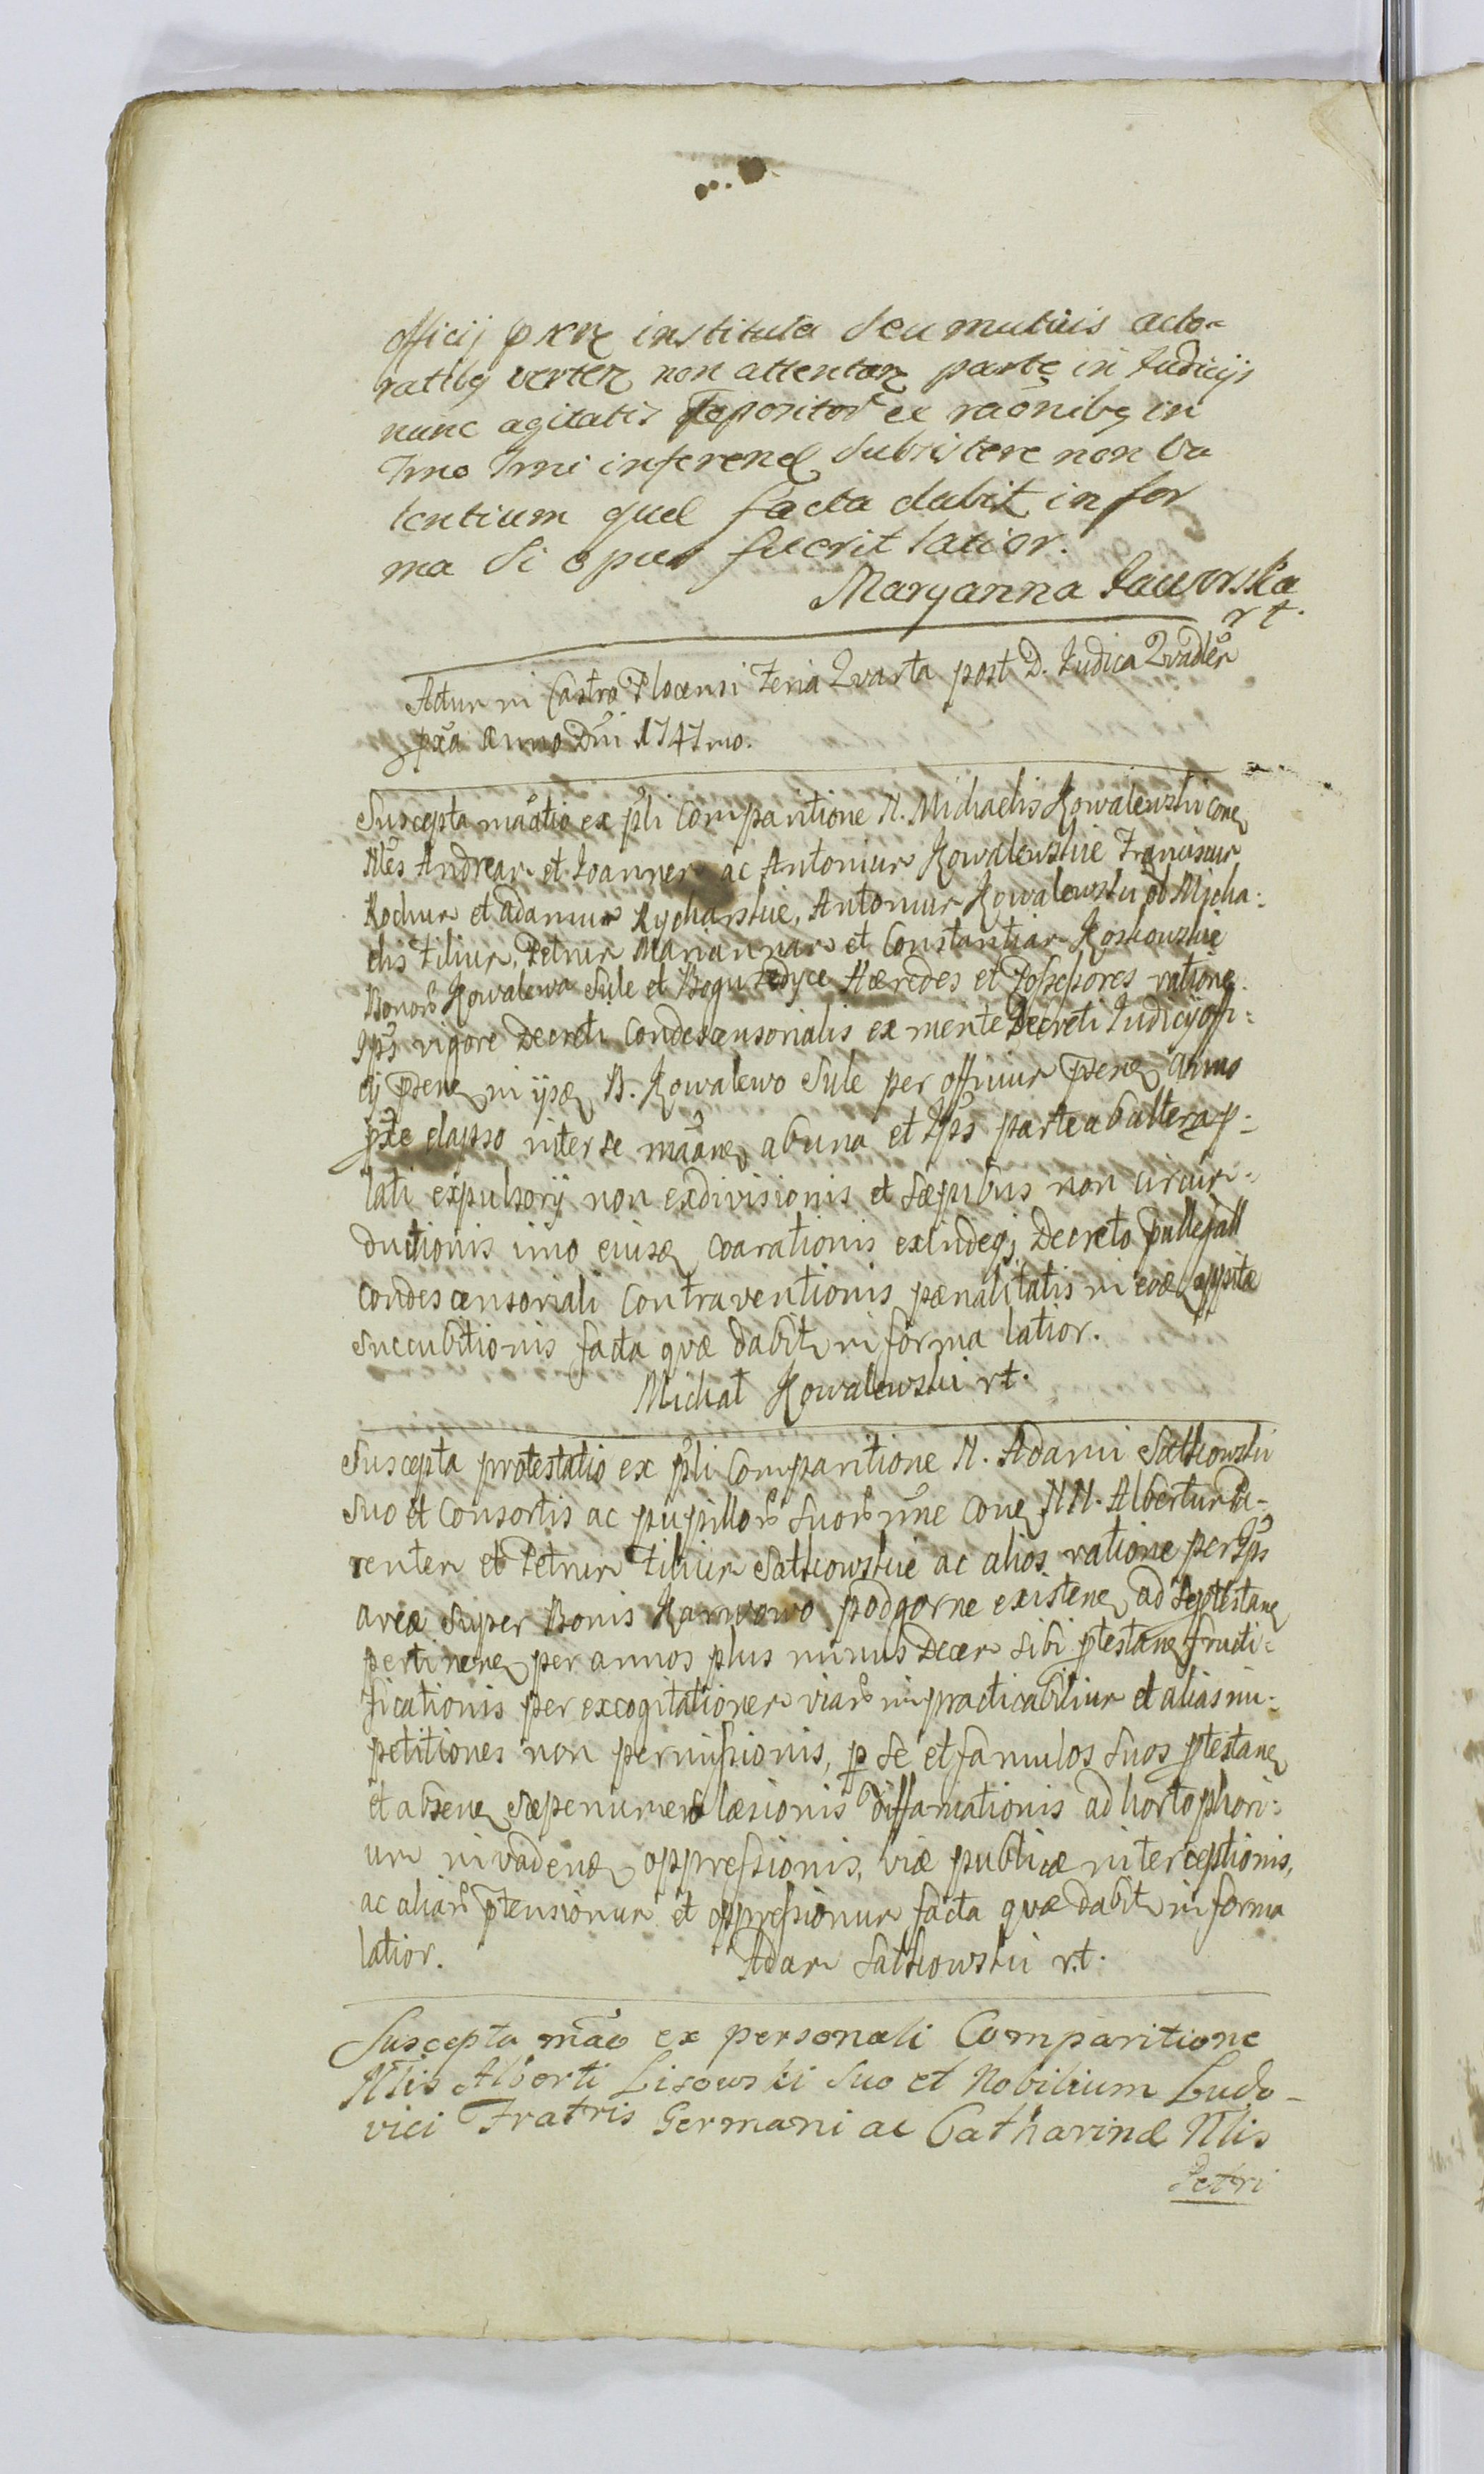 officij instituta seu mutuis acto-
ratibq vertez non attentoz parte in Judicijs
nunc agitatis repositor ex raõnibq in
Trno Trni inferend subsistere non va
lentium qued facta dabit in for
ma si opus fuerit latior.
Maryanna Jaworska
rt.
Actum in Castro Plocensi Feria Qvarta post D. Judica Qvadler
pxa Anno Dni 1747mo.
Suscepta mãatio ex pli Comparitione N. Michaelis Kowalewski cone
Nles Andream et Joannem ac Antonium Kowalewskie Franciscum
Rochum et Adamum Rycharskie, Antonium Kowalewski ol Micha:
elis Filium, Petrum Mariannam et Constantiam Koskowskie
Bonor Kowalewa Sule et Boguzedyce Hæredes et Possessores ratione
Ips vigore Decreti Condescensorialis ex mente Decreti Judicij offi:
cij psene in ijsd B. Kowalewo Sule per officium psene Anno
pxte elapso inter se mãane ab una et Ips parte ab altera p:
lati expulsorij non exdivisionis et sæpibus non circum:
ductionis imo eiusd coarationis exindeq; Decreto pallegall
Condescensoriali Contraventionis pænalitatis in eod appsitæ
succubitionis facta qvæ dabit in forma latior.
Michał Kowalewski rt.
Suscepta protestatio ex pli Comparitione N. Adami Satkowski
suo et Consortis ac pupillor suor nne cone NN. Albertum Pa-
rentem et Petrum Filium Satkowskie ac alios ratione per Ips
areæ super Bonis Karwowo podgorne existene ad septestane
pertinene per annos plus minus Decem sibi ptestane fructi:
ficationis per excogitationem viar impracticabilium et alias im:
petitiones non permissionis, p se et famulos suos ptestane
et absene sæpenumero læsionis diffamationis ad hortophori:
um invadend oppressionis, viæ publicæ interceptionis,
ac aliar ptensionum et oppressionum facta qvæ dabit in forma
latior. Adam Satkowski rt.
Suscepta mão ex personali Comparitione
Nlis Alberti Lisowski suo et Nobilium Ludo-
vici Fratris Germani ac Catharinæ Nlis
Petri